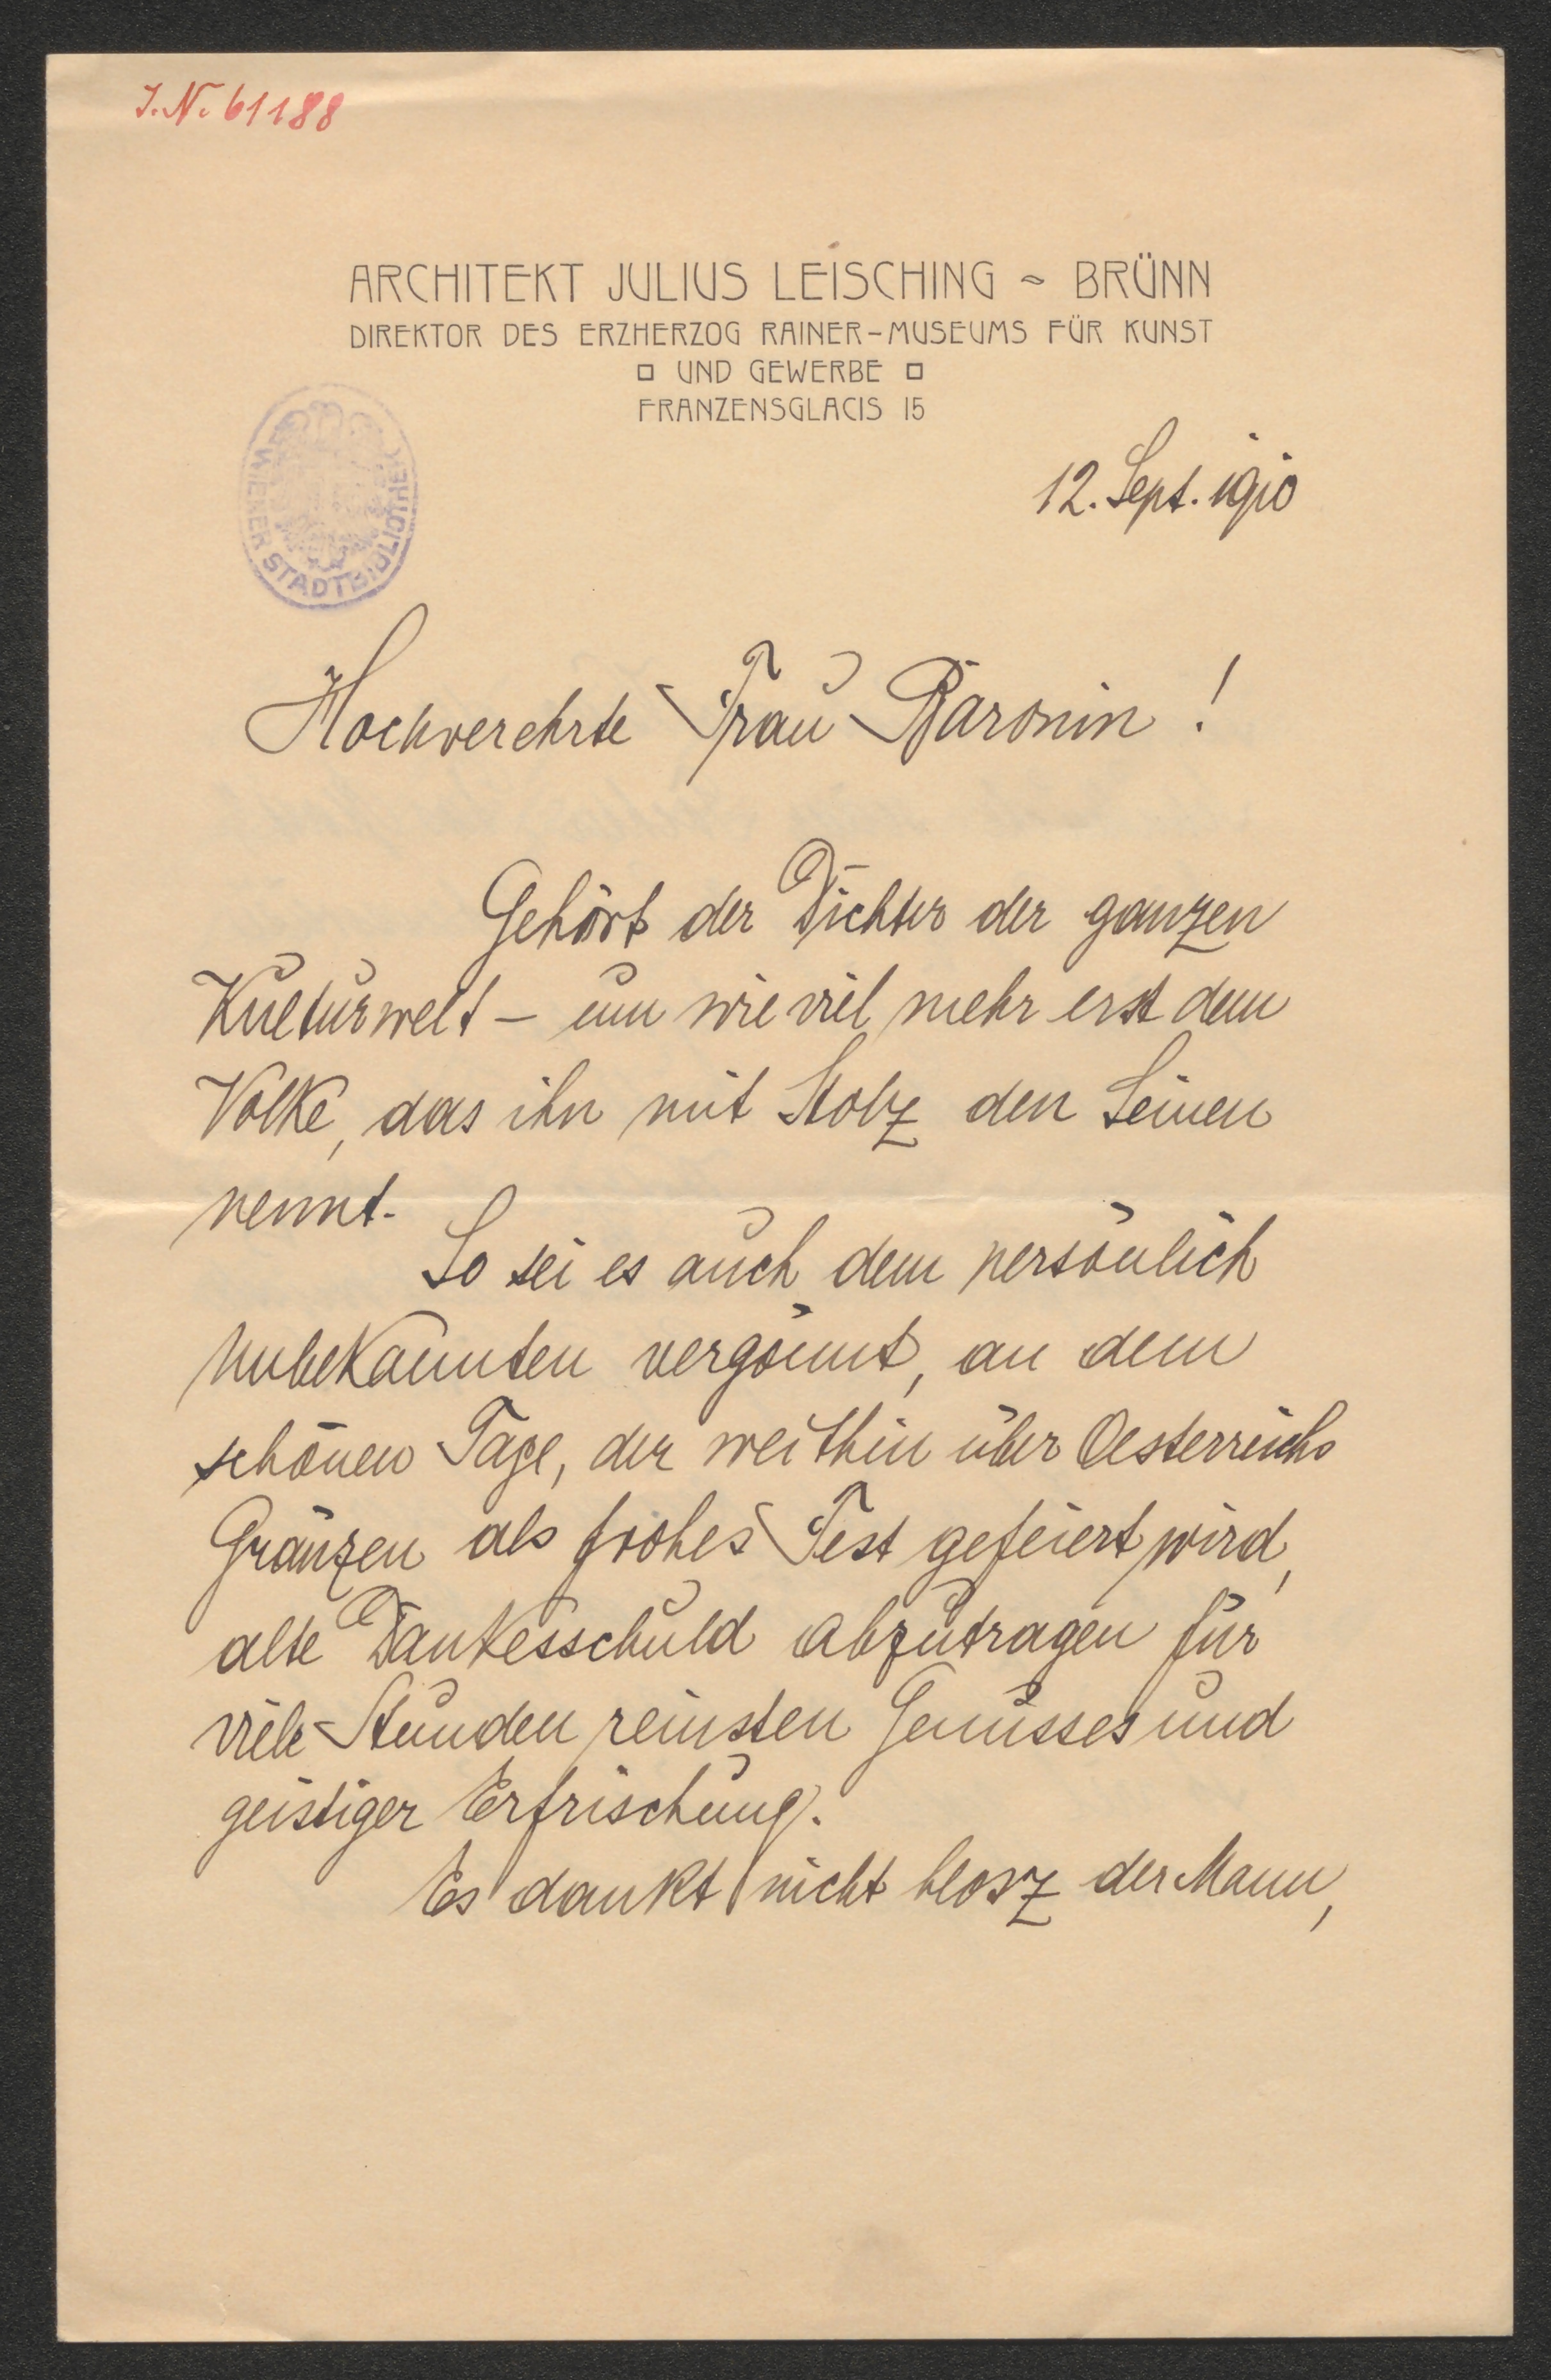 J.N. 61188
ARCHITEKT JULIUS LEISCHING ~ BRÜNN
DIREKTOR DES ERZHERZOG RAINER-MUSEUMS FÜR KUNST
UND GEWERBE
FRANZENSGLACIS 15
WIENER STADTBIBLIOTHEK
12. Sept. 1910
Hochverehrte Frau Baronin!
Gehört der Dichter der ganzen
Kulturwelt – um wie viel mehr erst dem
Volke, das ihn mit Stolz den Seinen
nennt.
So sei es auch dem persönlich
Unbekannten vergönnt, an dem
schönen Tage, der weithin über Oesterreichs
Gränzen als frohes Fest gefeiert wird,
alte Dankesschuld abzutragen für
viele Stunden reinsten Genusses und
geistiger Erfrischung.
Es dankt nicht blosz der Mann,